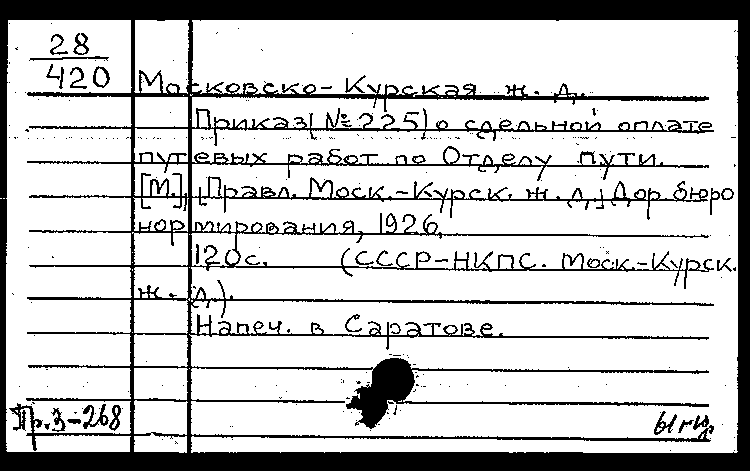 28
420
Московско-Курская ж. д.
Приказ [№ 225] о сдельной оплате
путевых работ по Отделу пути.
[М.], [Правл. Моск.-Курск. ж. д.] Дор. бюро
нормирования, 1926.
120с. (СССР-НКПС. Моск.-Курск.
ж. д.).
Напеч. в Саратове.
Пр.3-268